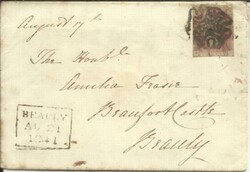 August 17th
The Honble
Amelia Fraser
Beaufort Castle
Beauly
BEAULY
AU 21
1841